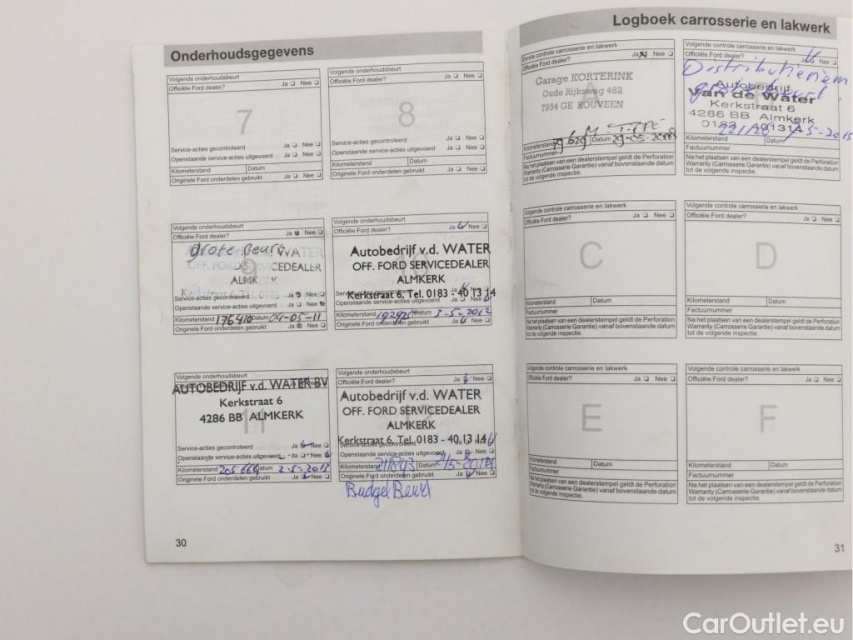 Onderhoudsgegevens
Volgende onderhoudsbeurt
Officiële Ford dealer? Ja Nee
7
Service-acties gecontroleerd Ja Nee
Openstaande service-acties uitgevoerd Ja Nee
Kilometerstand Datum
Originele Ford onderdelen gebruikt Ja Nee
Volgende onderhoudsbeurt
Officiële Ford dealer? Ja Nee
8
Service-acties gecontroleerd Ja Nee
Openstaande service-acties uitgevoerd Ja Nee
Kilometerstand Datum
Originele Ford onderdelen gebruikt Ja Nee
Volgende onderhoudsbeurt
Officiële Ford dealer? Ja Nee
grote Beurt WATER
OFF. FORD SERVICEDEALER
ALMKERK
Service-acties gecontroleerd
Openstaande service-acties uitgevoerd Ja Nee
Kilometerstand 176410 Datum 04-05-11
Originele Ford onderdelen gebruikt Ja Nee
Volgende onderhoudsbeurt
Officiële Ford dealer? Ja Nee
Autobedrijf v.d. WATER
OFF. FORD SERVICEDEALER
ALMKERK
Kerkstraat 6, Tel. 0183 - 40 13 14
Openstaande service-acties uitgevoerd Ja Nee
Kilometerstand Datum 3-5-2012
Originele Ford onderdelen gebruikt Ja Nee
Volgende onderhoudsbeurt
AUTOBEDRIJF v.d. WATER BV
Kerkstraat 6
4286 BB ALMKERK
11
Service-acties gecontroleerd Ja Nee
Openstaande service-acties uitgevoerd Ja Nee
Kilometerstand 205666 Datum 2-5-2013
Originele Ford onderdelen gebruikt Ja Nee
Volgende onderhoudsbeurt
Officiële Ford dealer? Ja Nee
Autobedrijf v.d. WATER
OFF. FORD SERVICEDEALER
ALMKERK
Kerkstraat 6, Tel. 0183 - 40 13 14
Openstaande service-acties uitgevoerd Ja Nee
Kilometerstand Datum
Originele Ford onderdelen gebruikt Ja Nee
Budget Beurt
30
Logboek carrosserie en lakwerk
Eerste controle carrosserie en lakwerk
Officiële Ford dealer? Ja Nee
A
Garage KORTERINK
Oude Rijksweg 482
7954 GE ROUVEEN
Kilometerstand Datum
Factuurnummer
Na het plaatsen van een dealerstempel geldt de Perforation
Warranty (Carrosserie Garantie) vanaf bovenstaande datum
tot de volgende inspectie.
Volgende controle carrosserie en lakwerk
Officiële Ford dealer? Ja Nee
Distributieriem
grote beurt
Autobedrijf
Van de Water
Kerkstraat 6
4286 BB Almkerk
0183 401314
Kilometerstand Datum
Factuurnummer
Na het plaatsen van een dealerstempel geldt de Perforation
Warranty (Carrosserie Garantie) vanaf bovenstaande datum
tot de volgende inspectie.
Volgende controle carrosserie en lakwerk
Officiële Ford dealer? Ja Nee
C
Kilometerstand Datum
Factuurnummer
Na het plaatsen van een dealerstempel geldt de Perforation
Warranty (Carrosserie Garantie) vanaf bovenstaande datum
tot de volgende inspectie.
Volgende controle carrosserie en lakwerk
Officiële Ford dealer? Ja Nee
D
Kilometerstand Datum
Factuurnummer
Na het plaatsen van een dealerstempel geldt de Perforation
Warranty (Carrosserie Garantie) vanaf bovenstaande datum
tot de volgende inspectie.
Volgende controle carrosserie en lakwerk
Officiële Ford dealer? Ja Nee
E
Kilometerstand Datum
Factuurnummer
Na het plaatsen van een dealerstempel geldt de Perforation
Warranty (Carrosserie Garantie) vanaf bovenstaande datum
tot de volgende inspectie.
Volgende controle carrosserie en lakwerk
Officiële Ford dealer? Ja Nee
F
Kilometerstand Datum
Factuurnummer
Na het plaatsen van een dealerstempel geldt de Perforation
Warranty (Carrosserie Garantie) vanaf bovenstaande datum
tot de volgende inspectie.
31
CarOutlet.eu